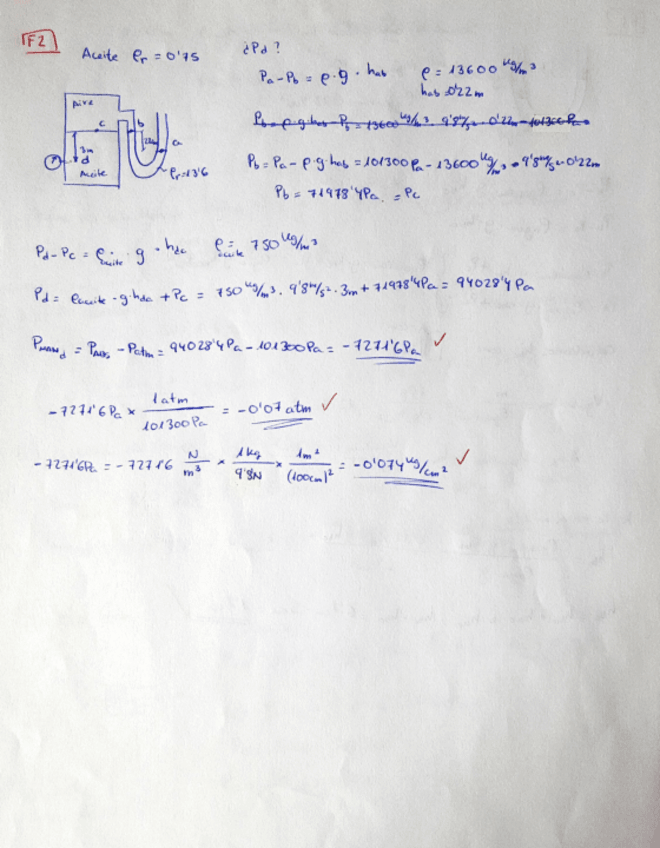 F2
Aceite ρr = 0'75 ¿Pd?
Pa - Pb = ρ · g · hab ρ = 13600 kg/m³
hab = 0'22m
Aire
c b
22cm a
3m
d
Aceite ρr=13'6
Pb = ρ·g·hab - Pa = 13600 kg/m³ · 9'8 m/s² · 0'22m - 101300 Pa
Pb = Pa - ρ·g·hab = 101300 Pa - 13600 kg/m³ · 9'8 m/s² · 0'22m
Pb = 71978'4 Pa. = Pc
Pd - Pc = ρaceite · g · hdc ρaceite = 750 kg/m³
Pd = ρaceite · g · hdc + Pc = 750 kg/m³ · 9'8 m/s² · 3m + 71978'4 Pa = 94028'4 Pa
PMANd = PABS - Patm = 94028'4 Pa - 101300 Pa = -7271'6 Pa ✓
-7271'6 Pa × 1 atm / 101300 Pa = -0'07 atm ✓
-7271'6 Pa = -7271'6 N/m³ × 1 kg / 9'8N × 1m² / (100cm)² = -0'074 kg/cm² ✓